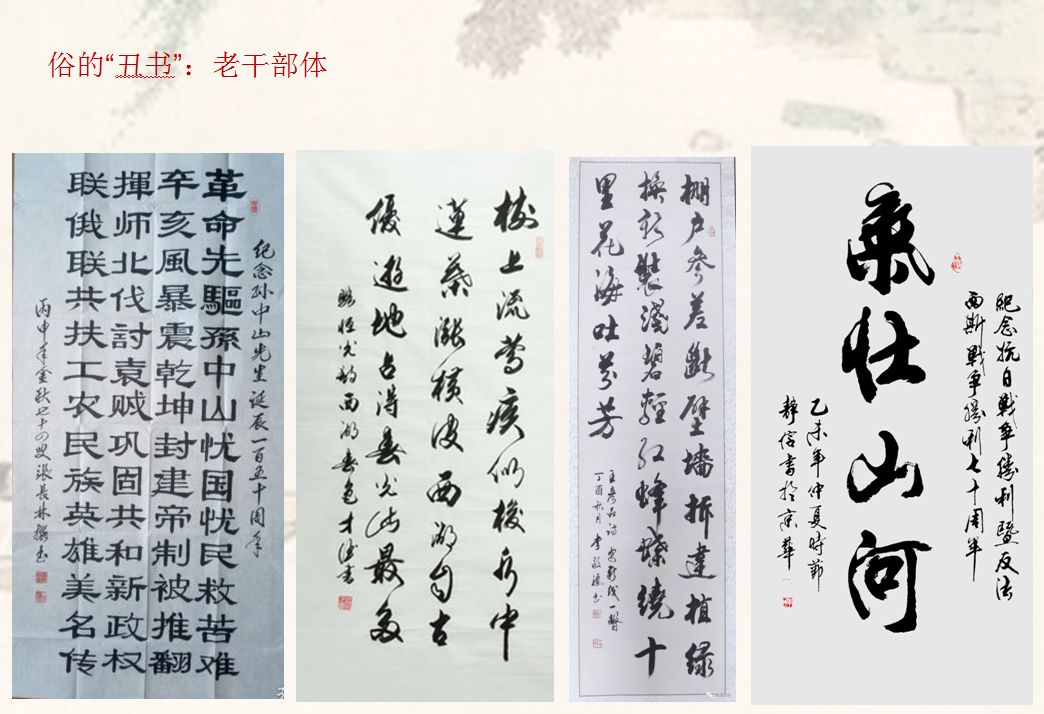 俗的“丑书”：老干部体
纪念孙中山先生诞辰一百五十周年
革命先驅孫中山忧国忧民救苦难
辛亥風暴震乾坤封建帝制被推翻
揮师北伐討袁贼巩固共和新政权
联俄联共扶工农民族英雄美名传
丙申年金秋七十四叟張長林撰书
樹上流莺疾似梭水中
蓮葉漲横波西湖自古
優遊地占得春光此最多
西湖春色
棚户參差断壁墙拆違植绿
换新裝淺碧輕红蜂蝶绕十
里花海吐芬芳
一瞥
丁酉秋月李
紀念抗日戰争勝利暨反法
西斯戰争勝利七十周年
氣壮山河
乙未年仲夏時節
靜信書於京華